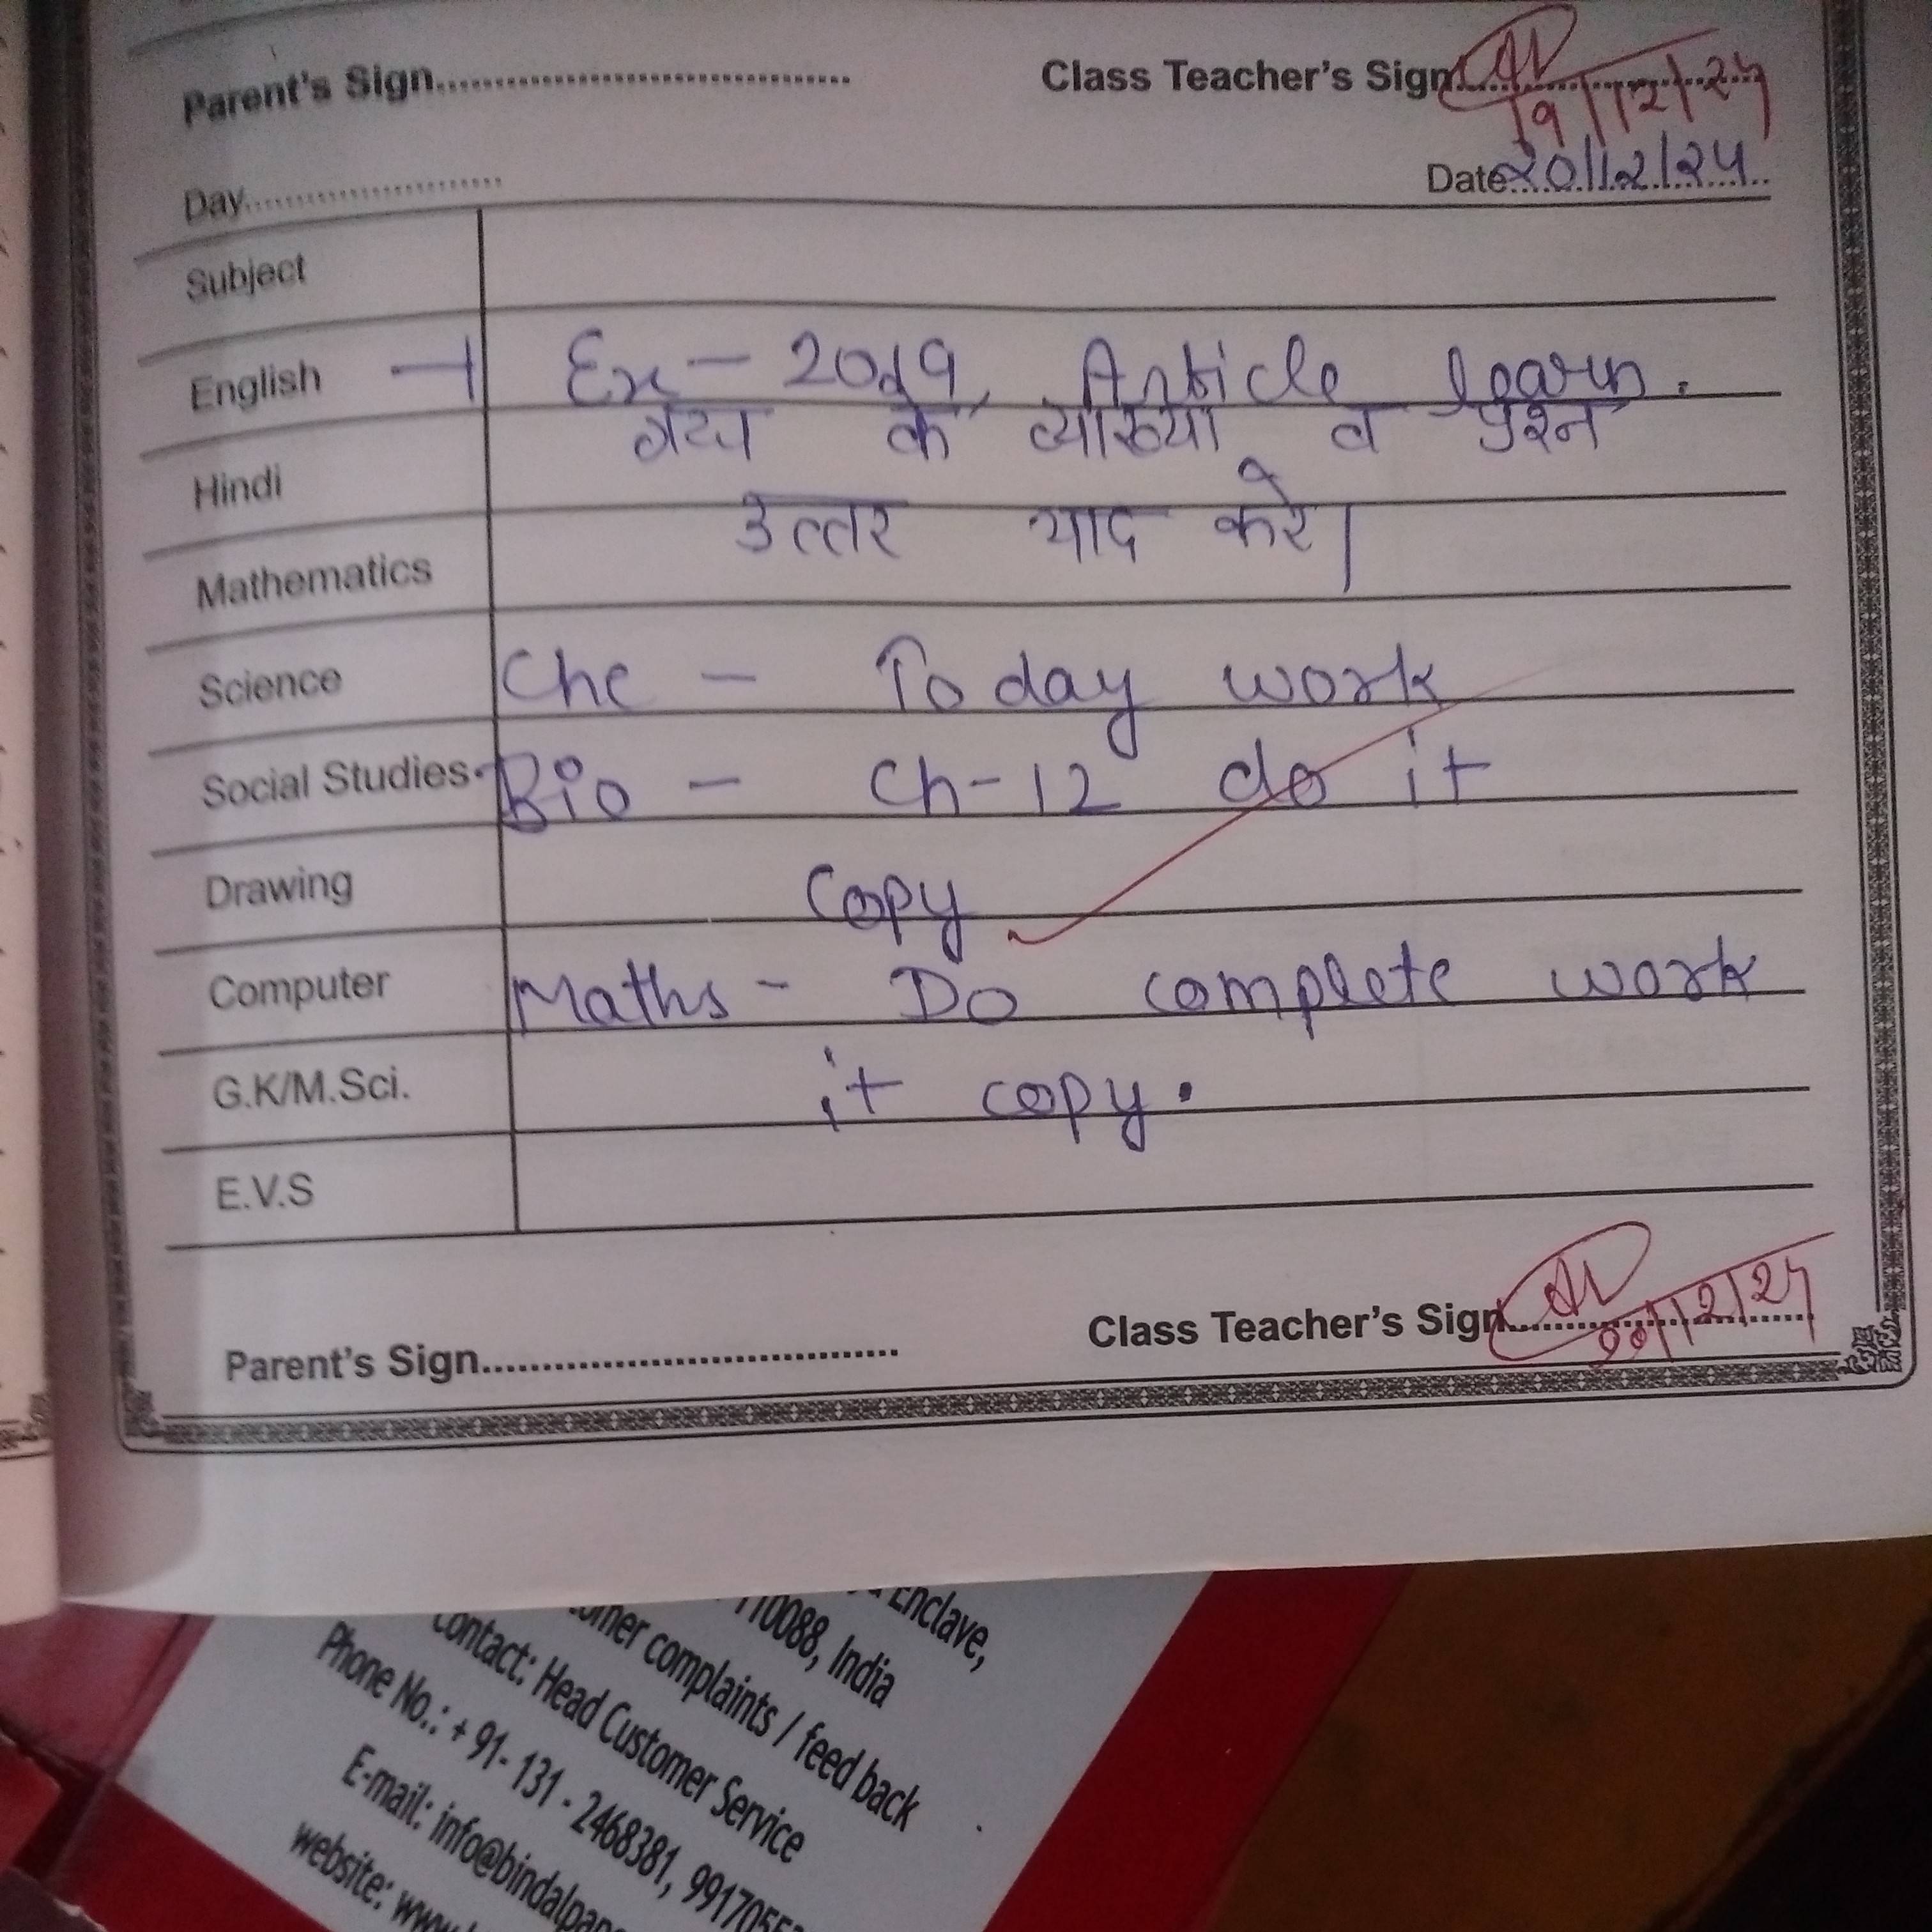 Parent's Sign................................... Class Teacher's Sign................
19/12/24
Day........................ Date 20/12/24
Subject
English Ex - 20,19, Article learn.
गद्य के व्याख्या व प्रश्न
Hindi
उत्तर याद करे।
Mathematics
Science Che - Today work
Social Studies Bio - Ch-12 do it
Drawing Copy
Computer Maths - Do complete work
G.K/M.Sci. it copy.
E.V.S
Parent's Sign................................... Class Teacher's Sign................
20/12/24
Enclave,
110088, India
complaints / feed back
contact: Head Customer Service
Phone No.: + 91- 131 - 2468381,
E-mail:
website: